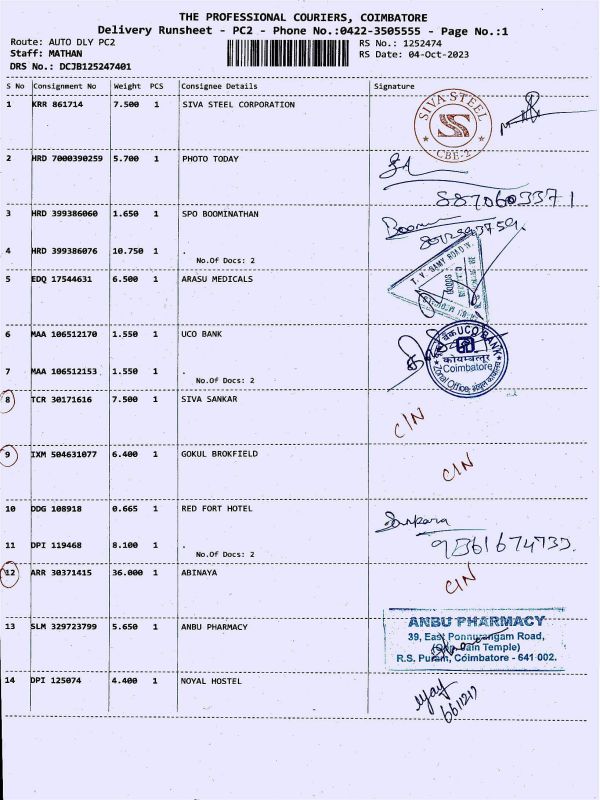 THE PROFESSIONAL COURIERS, COIMBATORE
Delivery Runsheet - PC2 - Phone No.:0422-3505555 - Page No.:1
Route: AUTO DLY PC2 RS No.: 1252474
Staff: MATHAN RS Date: 04-Oct-2023
DRS No.: DCJB125247401
S No Consignment No Weight PCS Consignee Details Signature
1 KRR 861714 7.500 1 SIVA STEEL CORPORATION
SIVA STEEL
S
CBE-2
2 HRD 7000390259 5.700 1 PHOTO TODAY
8870603371
3 HRD 399386060 1.650 1 SPO BOOMINATHAN
4 HRD 399386076 10.750 1 .
No.Of Docs: 2
5 EDQ 17544631 6.500 1 ARASU MEDICALS
T. V. SAMY ROAD W.
6 MAA 106512170 1.550 1 UCO BANK
UCO BANK
कोयम्बत्तूर
Coimbatore
Zonal Office
7 MAA 106512153 1.550 1 .
No.Of Docs: 2
8 TCR 30171616 7.500 1 SIVA SANKAR
C/N
9 IXM 504631077 6.400 1 GOKUL BROKFIELD
C/N
10 DDG 108918 0.665 1 RED FORT HOTEL
11 DPI 119468 8.100 1 .
No.Of Docs: 2
12 ARR 30371415 36.000 1 ABINAYA
C/N
13 SLM 329723799 5.650 1 ANBU PHARMACY
ANBU PHARMACY
39, East Ponnurangam Road,
R.S. Puram, Coimbatore - 641 002.
14 DPI 125074 4.400 1 NOYAL HOSTEL